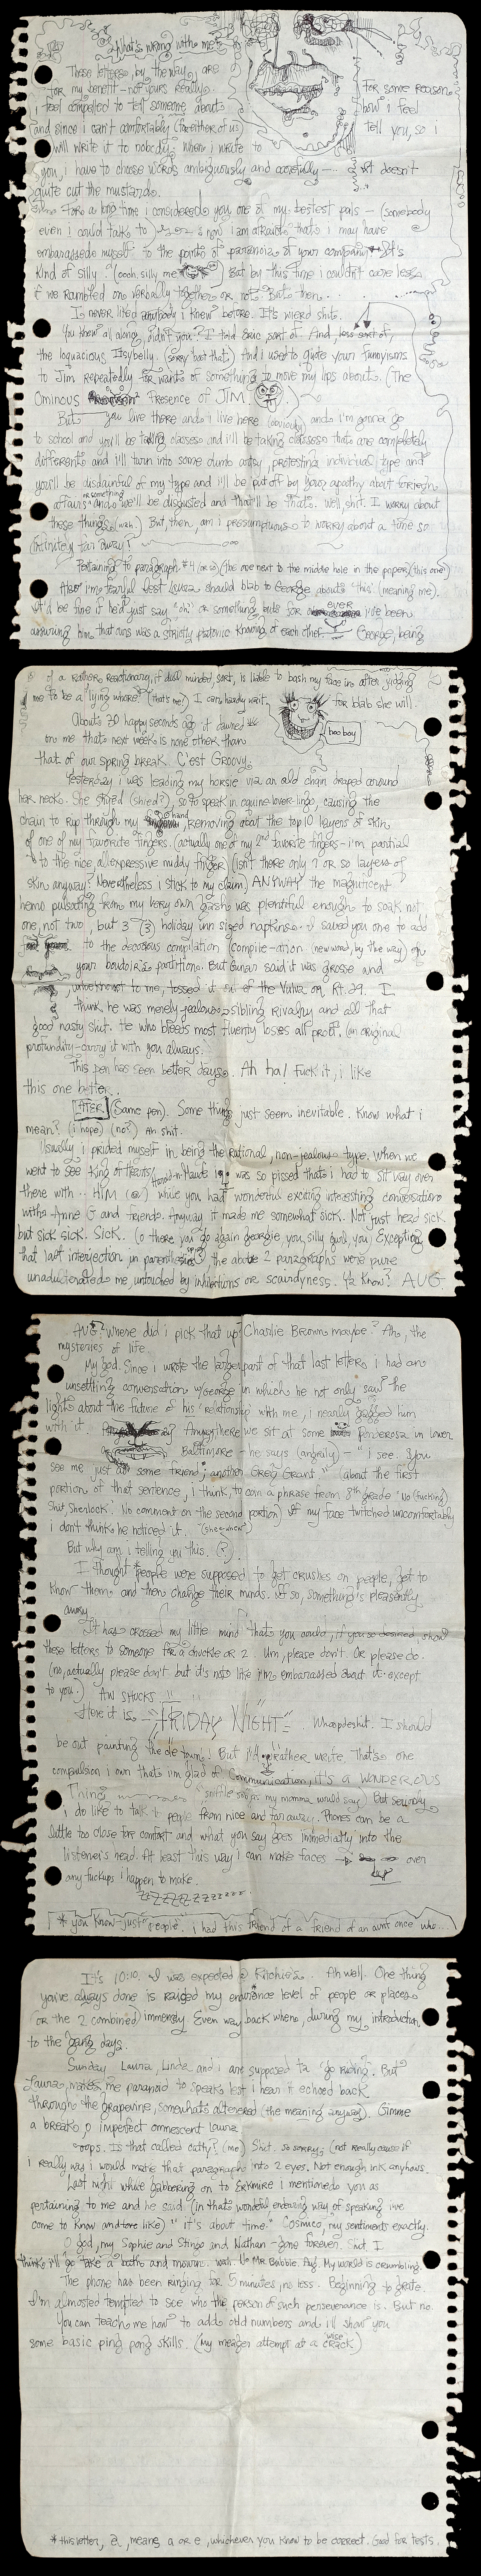 What's wrong with me?
These letters, by the way, are
for my benefit - not yours really. For some reason
i feel compelled to tell someone about how i feel
and since i can't comfortably (for either of us) tell you, so i
will write it to nobody. When i write to
you, i have to choose words ambiguously and carefully --- it doesn't
quite cut the mustard.
For a long time i considered you one of my bestest pals - (somebody
even i could talk to) now i am afraid that i may have
embarassed myself to the point of paranoia of your company. It's
kind of silly. (oooh, silly me) But by this time i couldn't care less
if we rambled on verbally together or not. But then...
I never liked anybody i knew before. It's wierd shit.
You knew all along, didn't you? I told Eric sort of. And,
the loquacious Itsybelly (sorry 'bout that) And i used to quote your funnyisms
to Jim repeatedly for wants of something to move my lips about. (The
Ominous Presence of JIM)
But you live there and i live here (obviously) and i'm gonna go
to school and you'll be taking classes and i'll be taking classes that are completely
different and i'll turn into some dumb artsy, protesting individual type and
you'll be disdainful of my type and i'll be put off by your apathy about foreign
affairs or something and we'll be disgusted and that'll be that. Well, shit. I worry about
these things (wah.) But, then, am i presumptuous to worry about a time so
(infinitely) far away?
Pertaining to paragraph #4 (or so) (the one next to the middle hole in the paper) (this one)
Also i'm fearful lest Laura should blab to George about "this" (meaning me).
It'd be fine if he'd just say, "oh" or something but for ever i've been
assuring him that ours was a strictly platonic knowing of each other. George, being
of a rather reactionary, if dull minded sort, is liable to bash my face in after judging
me to be a lying whore. (that's me!) I can hardly wait, for blab she will.
About 30 happy seconds ago it dawned
on me that next week is none other than boo boy
that of our spring break. C'est Groovy.
Yesterday i was leading my horsie via an old chain draped around
her neck. She shied (shyed?), so to speak in equine-lover-lingo, causing the
chain to rip through my hand, removing about the top 10 layers of skin
of one of my favorite fingers. (actually one of my 2nd favorite fingers - i'm partial
to the nice, all expressive middy finger) (isn't there only 7 or so layers of
skin anyway? Nevertheless i stick to my claim) ANYWAY the magnificent
hemo pulsating from my very own gash was plentiful enough to soak not
one, not two but 3 (3) holiday inn sized napkins. I saved you one to add
to the decorous compilation (compile-ation new word, by the way) on
your boudoir's partition. But Gunar said it was grosse and
unbeknownst to me, tossed it out of the Volva on Rt. 29. I
think he was merely jealous - sibling rivalry and all that
good nasty shit. He who bleeds most fluently loses all profit. (an original
profundity - carry it with you always.
This pen has seen better days. Ah ha! Fuck it, i like
this one better.
AFTER (Same pen). Some things just seem inevitable. Know what i
mean? (i hope) (no?) Ah shit.
Usually i prided myself in being the rational, non-jealous type. When we
went to see King of Hearts/Harold-n-Maude i was so pissed that i had to sit way over
there with... HIM while you had wonderful exciting interesting conversations
with Anne G and friends. Anyway it made me somewhat sick. Not just head sick
but sick sick. Sick. (o there you go again georgie, you silly gurl, you Excepting
that last interjection in parenthesis, the above 2 paragraphs were pure
unadulterated me, untouched by inhibitions or scaredyness. Y'know? AUG.
AUG? Where did i pick that up? Charlie Brown maybe? Ah, the
mysteries of life.
My god. Since i wrote the larger part of that last letter i had an
unsettling conversation w/George in which he not only saw "the
light" about the future of his 'relationship with me, i nearly gagged him
with it. Anyway here we sit at some Ponderosa in lower
Baltimore - he says (angrily) - "i see. You
see me just as some friend; another Greg Grant." (about the first
portion of that sentence, i think, to coin a phrase from 8th grade "No (fucking)
shit, Sherlock". No comment on the second portion) If my face twitched uncomfortably
i don't think he noticed it. "(shee-whew)"
But why am i telling you this. (R)
I thought *people were supposed to get crushes on people, get to
know them and then change their minds. If so, something's pleasently
awry.
It has crossed my little mind that you could, if you so desired, show
these letters to someone for a chuckle or 2. Um, please don't. Or please do.
(no, actually please don't but it's not like i'm embarassed about it - except
to you.) AW SHUCKS
Here it is - FRIDAY NIGHT. Whoopdeshit. I should
be out painting the ole town. But i'd rather write. That's one
compulsion i own that i'm glad of. Communication, it's a WONDEROUS
Thing (sniffle sniff as my momma would say) But seriously
i do like to talk to people from nice and far away. Phones can be a
little too close for comfort and what you say goes immediately into the
listener's head. At least this way i can make faces → over
any fuckups i happen to make.
zzZzzzzzzz...
* you know - just "people". i had this friend of a friend of an aunt once who...
It's 10:10. I was expected @ Ritchie's. Ah well. One thing
you've always done is raised my endurance level of people or places
(or the 2 combined) immensly. Even way back when, during my introduction
to the gang days.
Sunday Laura, Linda and i are supposed ta "go riding". But
Laura makes me paranoid to speak lest i hear it echoed back
through the grapevine, somewhat altered (the meaning anyway). Gimme
a break, o imperfect omnescent Laura.
oops. Is that called cathy? (me) Shit. so sorry. (not really cause if
i really was i would make that paragraph into 2 eyes. Not enough ink anyhow.
Last night while gabbering on to Erkmire i mentioned you as
pertaining to me and he said (in that wonderful endearing way of speaking i've
come to know and love like) "it's about time." Cosmico, my sentiments exactly.
O god, my Sophie and Stingo and Nathan - gone forever. Shit, I
think i'll go take a bath and mourn. wah. No Mr. Bubble. Aug. My world is crumbling.
The phone has been ringing for 5 minutes, no less. Beginning to grate.
I'm almosted tempted to see who the person of such perseverance is. But no.
You can teach me how to add odd numbers and i'll show you
some basic ping pong skills. (My meager attempt at a wise crack)
* this letter, a, means a or e, whichever you know to be correct. Good for tests.